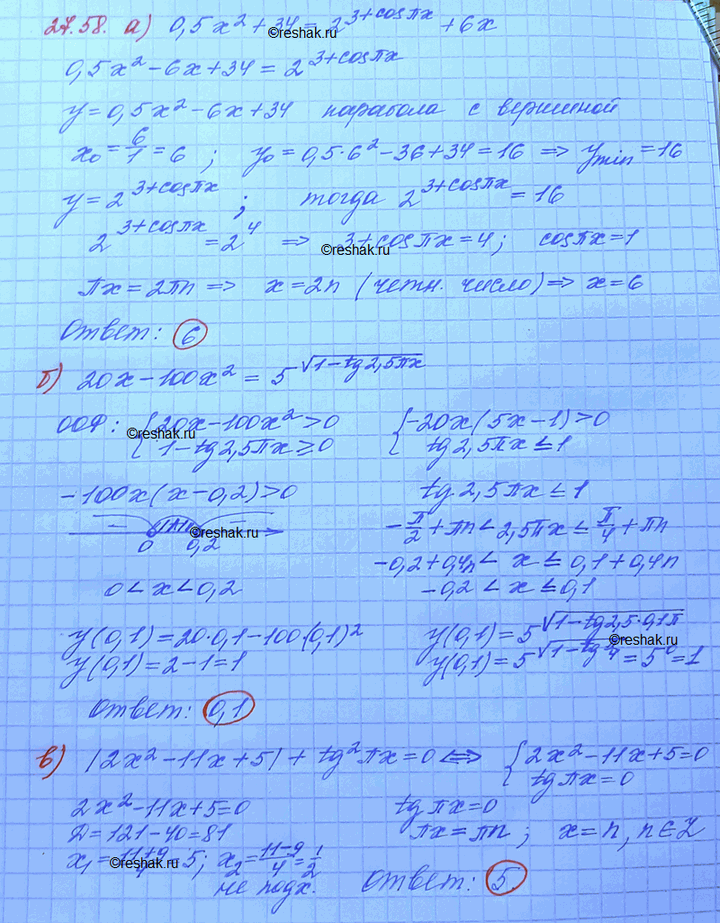 27.58. а) 0,5x² + 34 = 2^(3+cosπx) + 6x
©reshak.ru
0,5x² − 6x + 34 = 2^(3+cosπx)
y = 0,5x² − 6x + 34 парабола с вершиной
x₀ = 6/1 = 6 ; y₀ = 0,5·6² − 36 + 34 = 16 ⇒ y_min = 16
y = 2^(3+cosπx) ; тогда 2^(3+cosπx) = 16
2^(3+cosπx) = 2⁴ ⇒ 3+cosπx = 4 ; cosπx = 1
©reshak.ru
πx = 2πn ⇒ x = 2n (четн. число) ⇒ x = 6
Ответ: 6
б) 20x − 100x² = 5^(√(1−tg2,5πx))
ООФ: { 20x − 100x² > 0 { −20x(5x−1) > 0
©reshak.ru
1 − tg2,5πx ≥ 0 tg2,5πx ≤ 1
−100x(x−0,2) > 0 tg2,5πx ≤ 1
− + −
©reshak.ru
0 0,2
−π/2 + πn < 2,5πx ≤ π/4 + πn
−0,2 + 0,4n < x ≤ 0,1 + 0,4n
0 < x < 0,2 −0,2 < x ≤ 0,1
y(0,1) = 20·0,1 − 100·(0,1)² y(0,1) = 5^(√(1−tg2,5·0,1π))
©reshak.ru
y(0,1) = 2 − 1 = 1 y(0,1) = 5^(√(1−tg π/4)) = 5⁰ = 1
Ответ: 0,1
в) |2x² − 11x + 5| + tg²πx = 0 ⟺ { 2x² − 11x + 5 = 0
tgπx = 0
2x² − 11x + 5 = 0 tgπx = 0
D = 121 − 40 = 81 πx = πn ; x = n, n∈Z
x₁ = (11+9)/4 = 5; x₂ = (11−9)/4 = 1/2
©reshak.ru
не подх. Ответ: 5